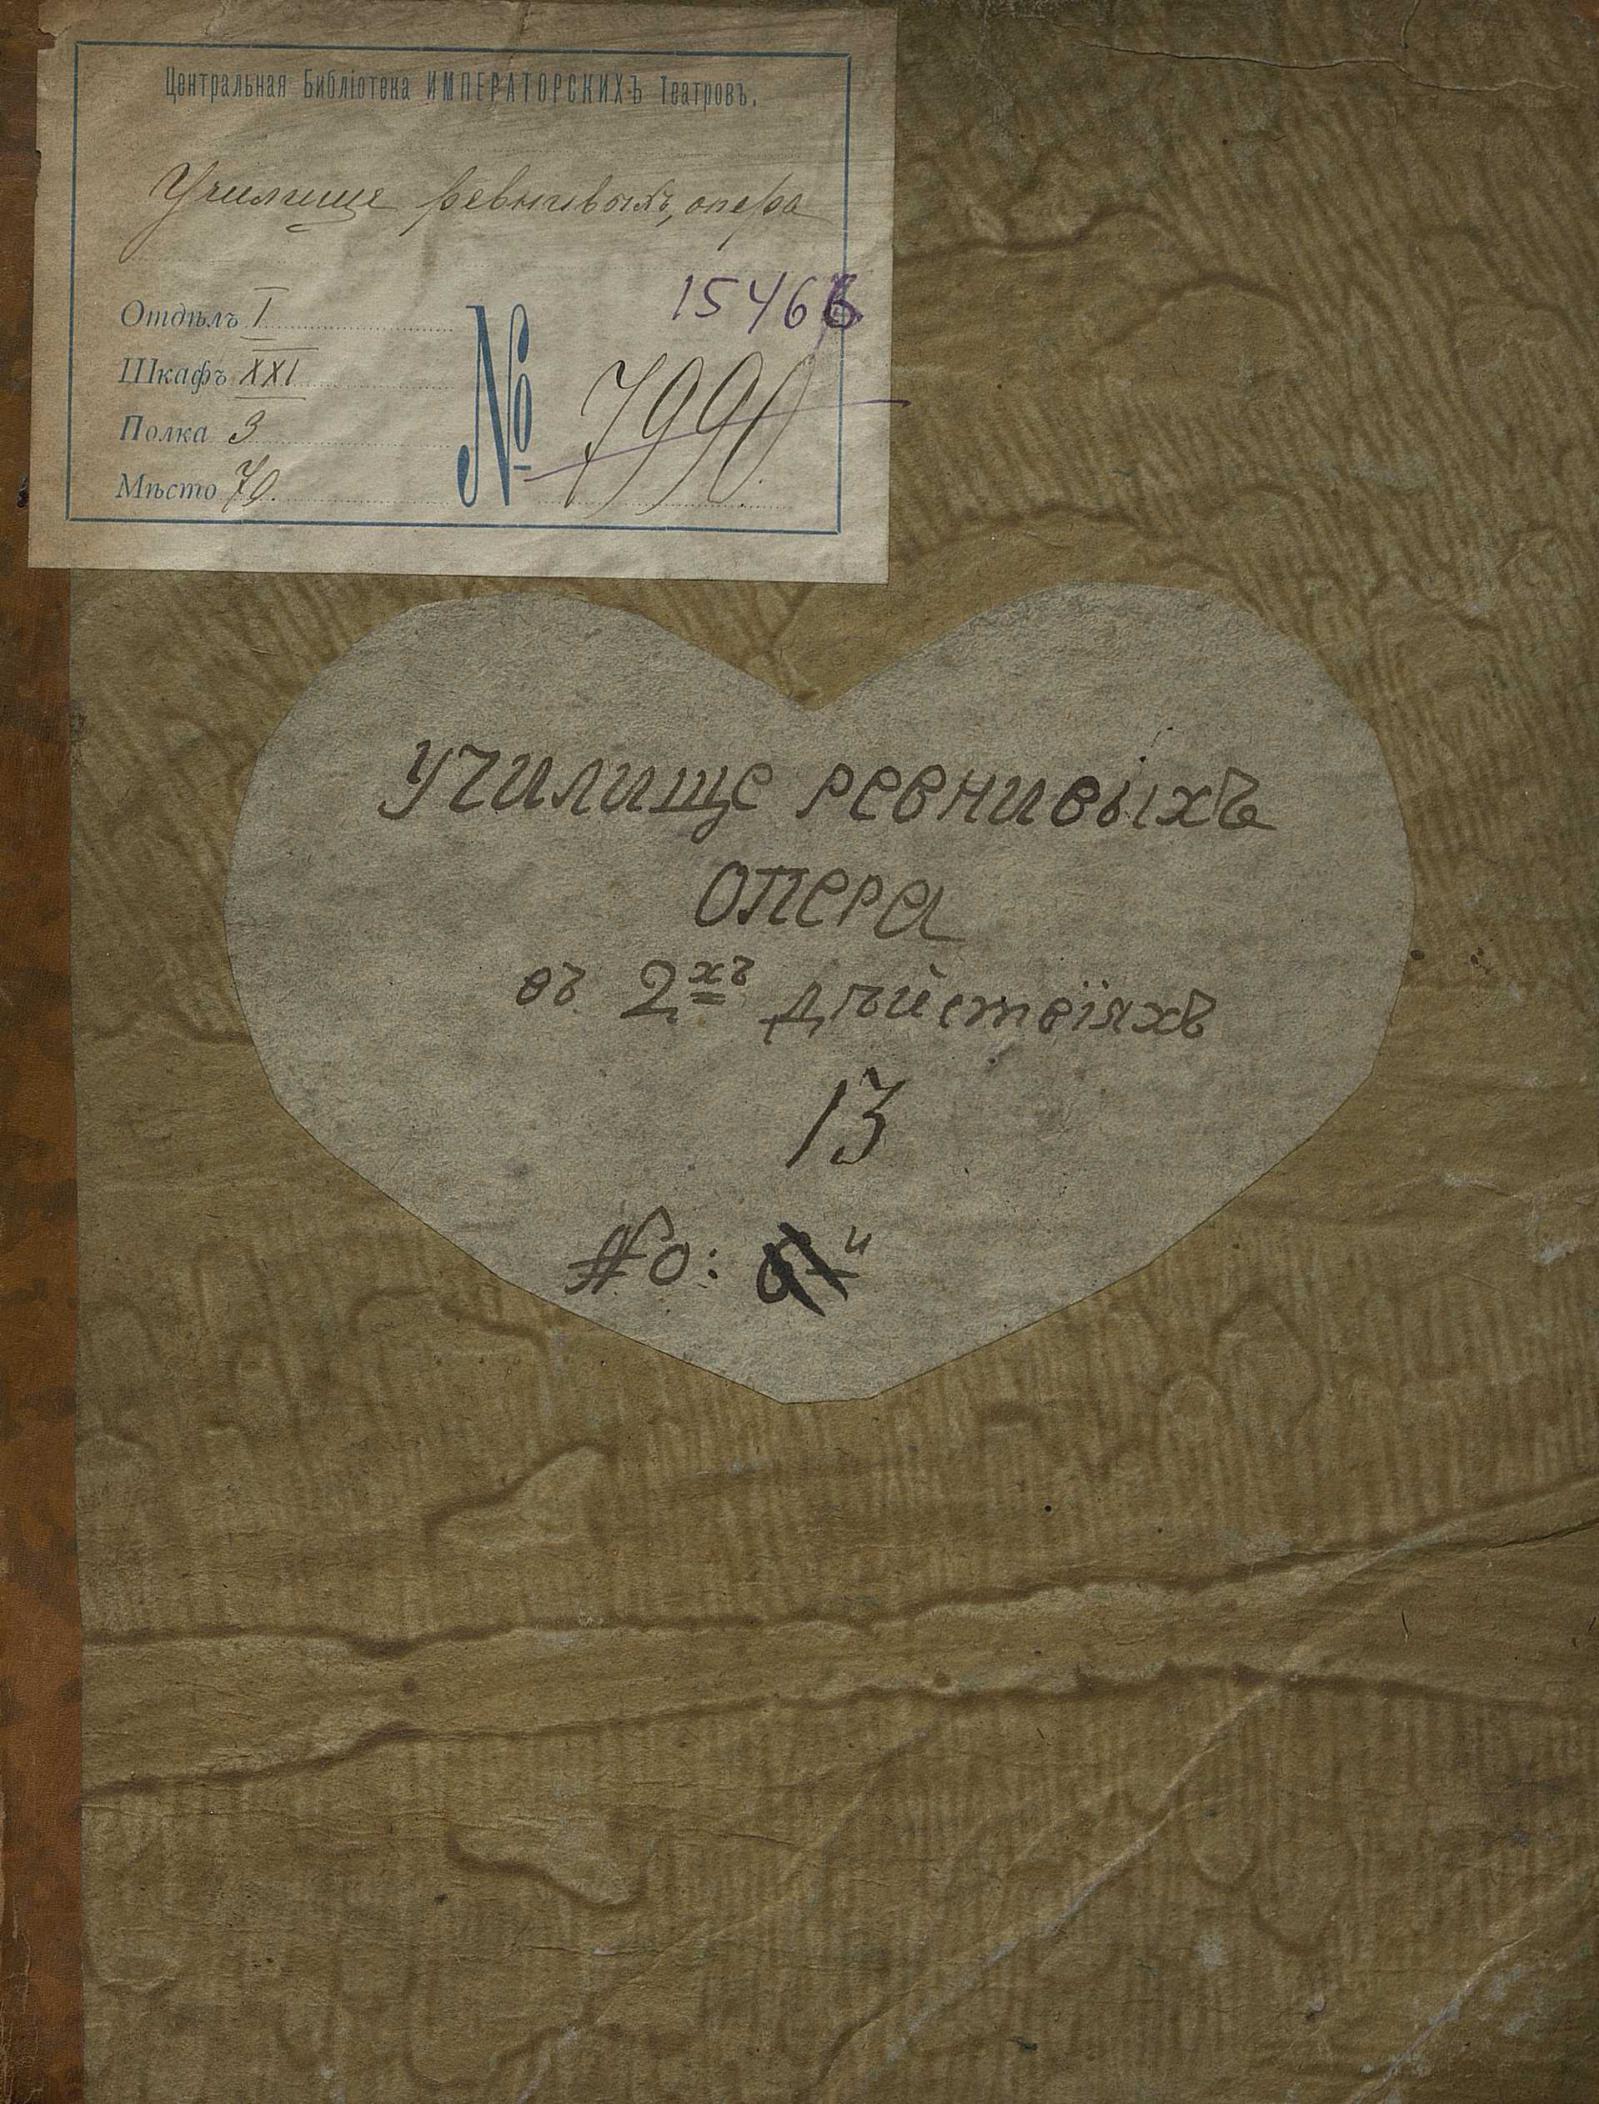 Центральная Библіотека ИМПЕРАТОРСКИХЪ Театровъ.
Училище ревнивыхъ, опера
15466
Отдѣлъ I
Шкафъ XXI
Полка 3
Мѣсто 70.
№ 7990.
училище ревнивыхъ
опера
въ 2хъ дѣйствіяхъ
13
No: